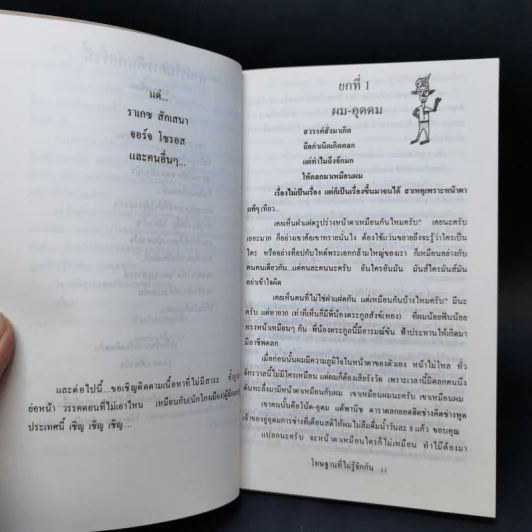 แด่...
ราเกซ สักเสนา
จอร์จ โซรอส
และคนอื่นๆ...
และต่อไปนี้...ขอเชิญติดตามเนื้อหาที่ไม่มีสาระ ทั้ง
ย่อหน้า วรรคตอนที่ไม่เอาไหน เหมือนกับ
ประเทศนี้ เชิญ เชิญ เชิญ...
ยกที่ 1
ผม-อุดดม
สวรรค์สั่งมาเกิด
ถือกำเนิดเกิดตลก
แต่ทำไมถึงจักมก
ให้ตลกมาเหมือนผม
เรื่องไม่เป็นเรื่อง แต่ก็เป็นเรื่องขึ้นมาจนได้ สาเหตุเพราะหน้าตา
แท้ๆ เทียว...
เคยเห็นฝาแฝดรูปร่างหน้าตาเหมือนกันไหมครับ? เคยนะครับ
เยอะมาก ก็อย่างเขาค้อเขาทรายนั่นไง ต้องใช้แว่นขยายถึงจะรู้ว่าใครเป็น
ใคร หรืออย่างท็อปกับไทด์พระเอกกล้ามใหญ่ของเรา ก็เหมือนอย่างกับ
คนคนเดียวกัน...แต่คนละคนนะครับ อันใครอันมัน มันส์ใครมันส์มัน
อย่าเข้าใจผิด
เคยเห็นคนที่ไม่ใช่ฝาแฝดกัน แต่เหมือนกันบ้างไหมครับ? มีนะ
ครับ แต่หายาก เท่าที่เห็นก็มีพี่น้องตระกูลสังข์(ทอง) ที่ผมน้อยฟันน้อย
ทรงหน้าเหมือนๆ กัน พี่น้องตระกูลนี้มีอารมณ์ขัน ฟ้าประทานให้เกิดมา
มีอาชีพตลก
เมื่อก่อนนั้นผมมีความภูมิใจในหน้าตาของตัวเอง หน้าไม่โหล ทั่ว
จักรวาลนี้ไม่มีใครเหมือน แต่ผมก็ต้องเสียรังวัด เพราะเวลานี้มีตลกคนนึง
ดันทะลึ่งมามีหน้าตาเหมือนกับผม เขาเหมือนผมนะครับ เขาเหมือนผม
เขาคนนั้นคือโน้ต-อุดม แต้พานิช ดาราตลกยอดฮิตช่างคิดช่างพูด
เจ้าของยู่อุดมการช่างที่เตือนสติให้ผมไม่ลืมดื่มน้ำวันละ 8 แก้ว ขอบคุณ
แปลกนะครับ จะหน้าตาเหมือนใครก็ไม่เหมือน ทำไมต้องมา
โทษฐานที่ไม่รู้จักกัน 11